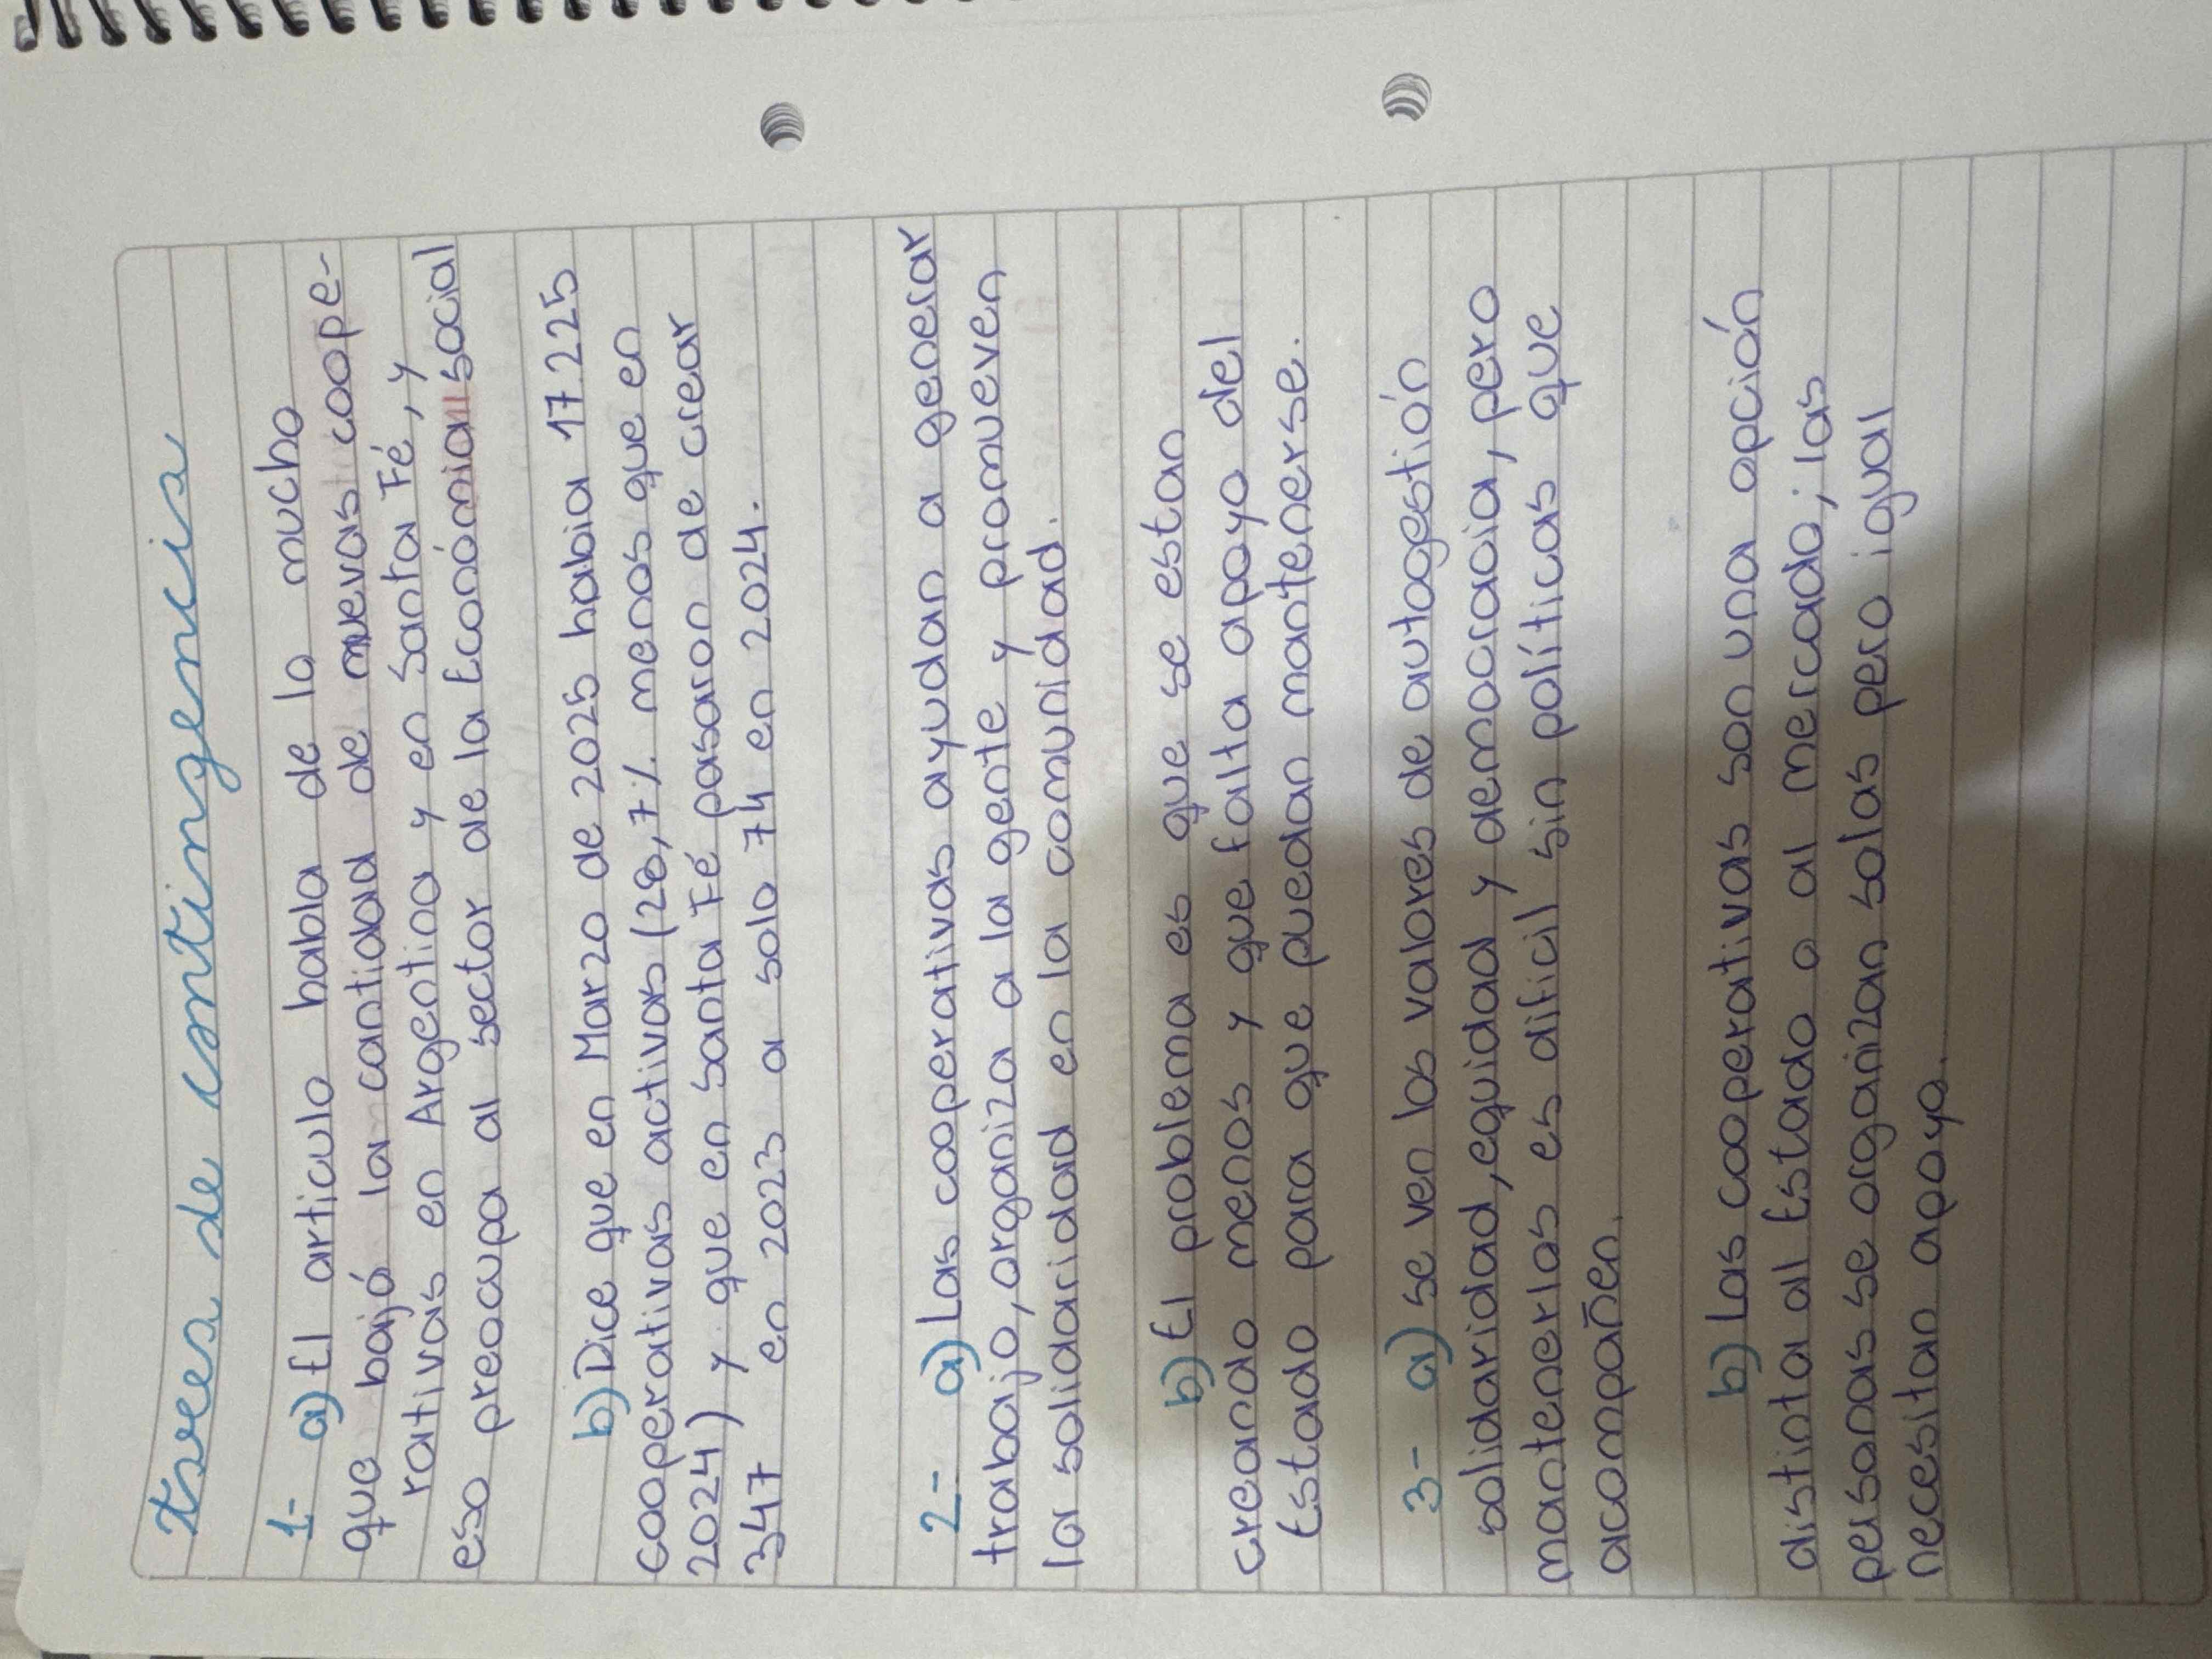 tarea de contingencia
1- a) El articulo habla de lo mucho
que bajó la cantidad de nuevas coope-
rativas en Argentina y en Santa Fé, y
eso preocupa al sector de la Económia social
b) Dice que en Marzo de 2025 habia 17.225
cooperativas activas (28,7% menos que en
2024) y que en Santa Fé pasaron de crear
347 en 2023 a solo 74 en 2024.
2- a) Las cooperativas ayudan a generar
trabajo, organiza a la gente y promueven
la solidaridad en la comunidad.
b) El problema es que se estan
creando menos y que falta apoyo del
Estado para que puedan mantenerse.
3- a) se ven los valores de autogestión
solidaridad, equidad y democracia, pero
mantenerlas es dificil sin políticas que
acompañen.
b) Las cooperativas son una opción
distinta al Estado o al mercado; las
personas se organizan solas pero igual
necesitan apoyo.